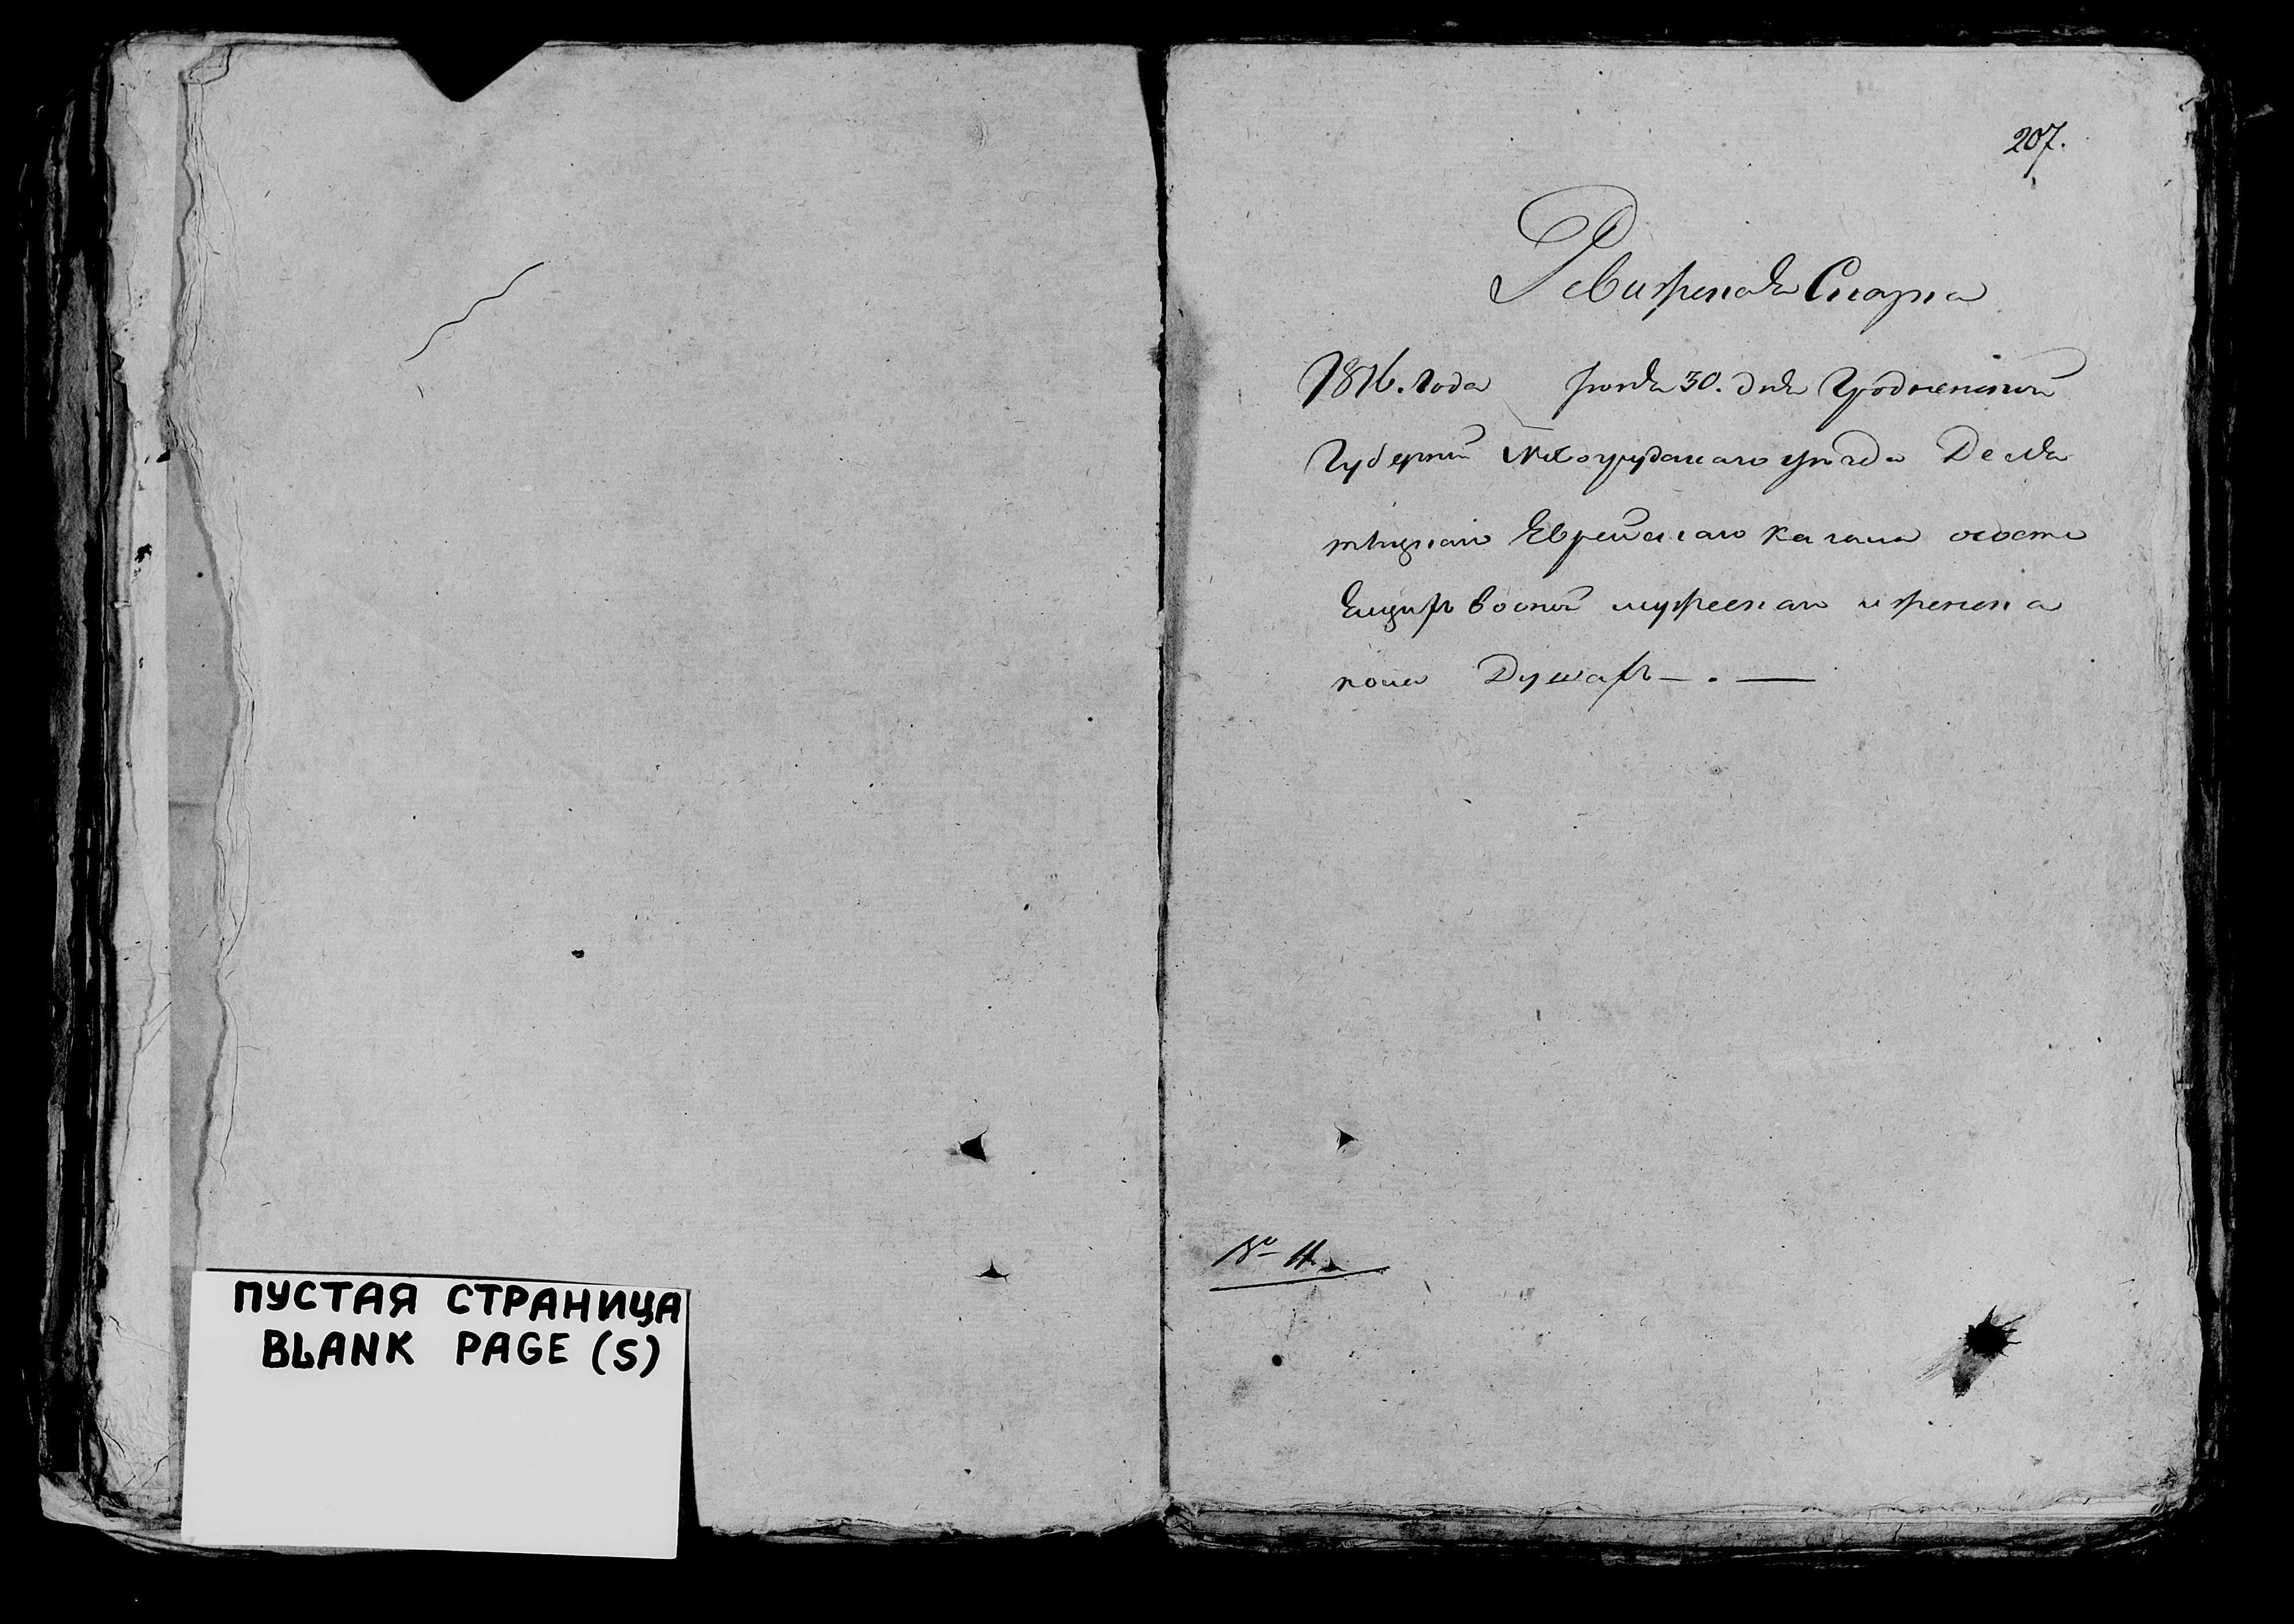 ПУСТАЯ СТРАНИЦА
BLANK PAGE (S)
207.
Ревижская Сказка
1816. года июня 30. дня Гродненской
Губернии Новогрудскаго уезда Деля
тыцкаго Еврейскаго кагала осостоя
ещихъ вооной мужескаго и женска
кола Душахъ — . —
№ 11.